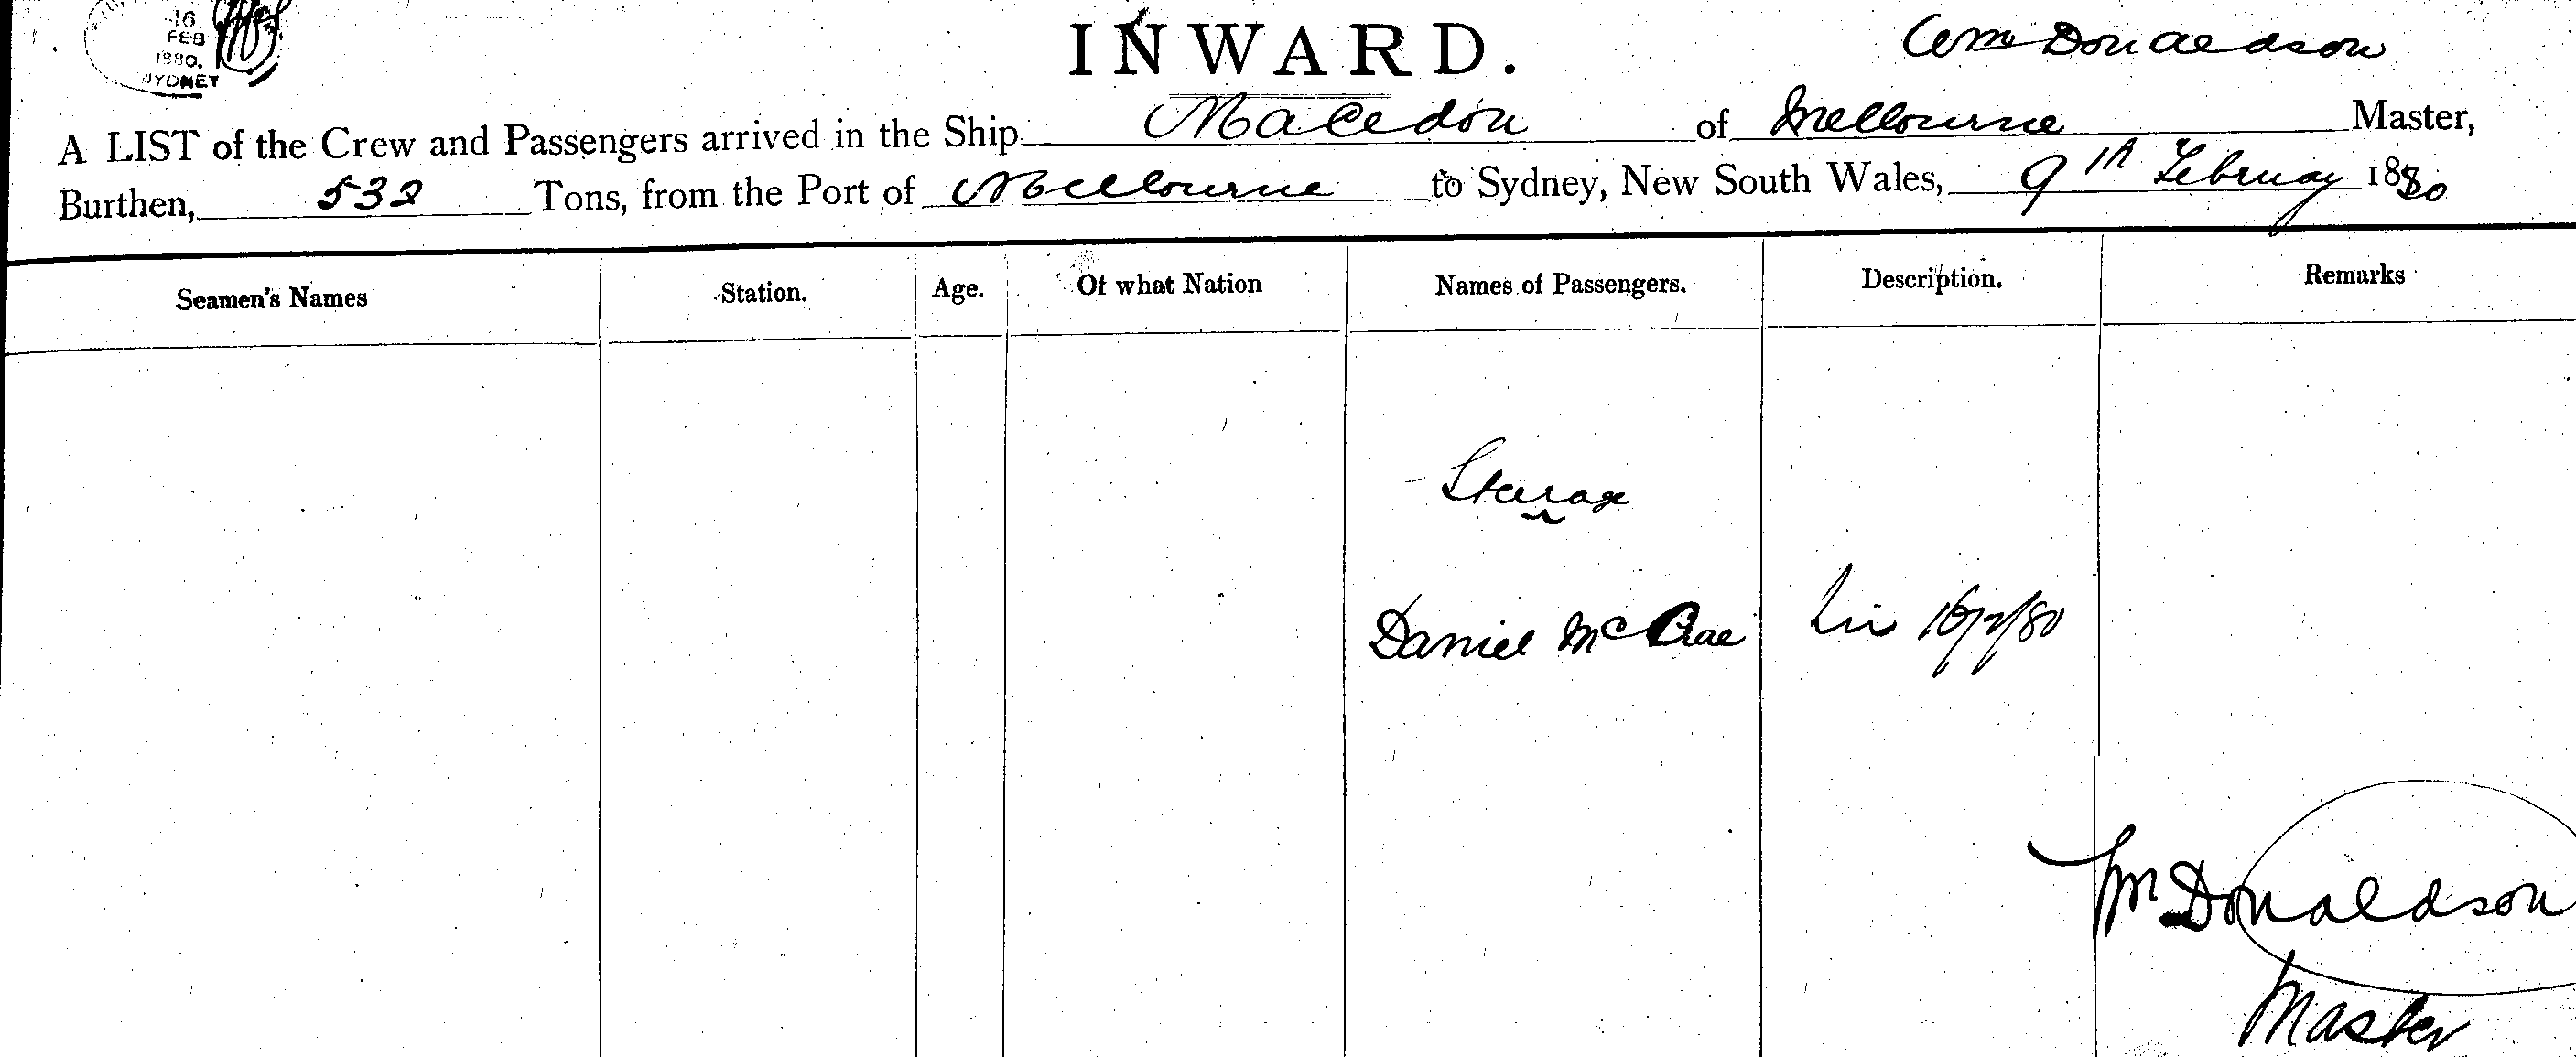 16
FEB
1880.
SYDNEY
INWARD.
Wm Donaldson
A LIST of the Crew and Passengers arrived in the Ship Macedon of Melbourne Master,
Burthen, 532 Tons, from the Port of Melbourne to Sydney, New South Wales, 9th February 1880
Seamen's Names Station. Age. Of what Nation Names of Passengers. Description. Remarks
Steerage
Daniel McCrae 16/2/80
Wm Donaldson
Master